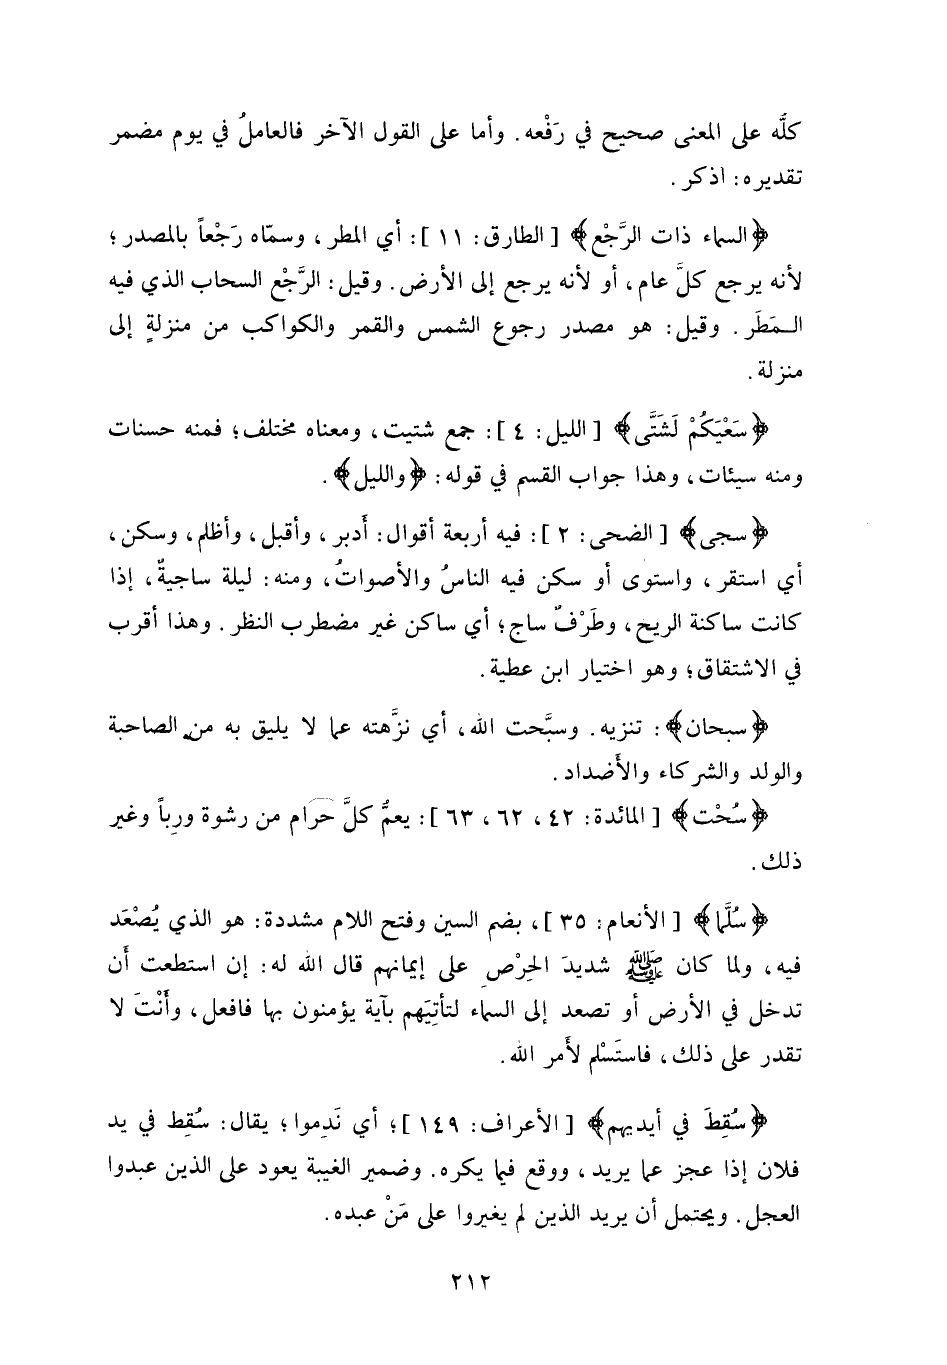 كلَّه على المعنى صحيح في رَفْعه. وأما على القول الآخر فالعاملُ في يوم مضمر
تقديره: اذكر.
﴿السماء ذات الرَّجْع﴾ [الطارق: ١١]: أي المطر، وسمّاه رَجْعاً بالمصدر؛
لأنه يرجع كلَّ عام، أو لأنه يرجع إلى الأرض. وقيل: الرَّجْع السحاب الذي فيه
الـمَطَر. وقيل: هو مصدر رجوع الشمس والقمر والكواكب من منزلةٍ إلى
منزلة.
﴿سَعْيَكُمْ لَشَتَّى﴾ [الليل: ٤]: جمع شتيت، ومعناه مختلف؛ فمنه حسنات
ومنه سيئات، وهذا جواب القسم في قوله: ﴿والليل﴾.
﴿سجى﴾ [الضحى: ٢]: فيه أربعة أقوال: أَدبر، وأقبل، وأظلم، وسكن،
أي استقر، واستوى أو سكن فيه الناسُ والأصواتُ، ومنه: ليلة ساجيةٌ، إذا
كانت ساكنة الريح، وطَرْفٌ ساج؛ أي ساكن غير مضطرب النظر. وهذا أقرب
في الاشتقاق؛ وهو اختيار ابن عطية.
﴿سبحان﴾: تنزيه. وسبَّحت الله، أي نزَّهته عما لا يليق به من الصاحبة
والولد والشركاء والأَضداد.
﴿سُحْت﴾ [المائدة: ٤٢، ٦٢، ٦٣]: يعمُّ كلَّ حَرام من رشوة ورِباً وغير
ذلك.
﴿سُلَّما﴾ [الأنعام: ٣٥]، بضم السين وفتح اللام مشددة: هو الذي يُصْعَد
فيه، ولما كان ﷺ شديدَ الحِرْصِ على إيمانهم قال الله له: إن استطعت أَن
تدخل في الأرض أو تصعد إلى السماء لتأتِيَهم بآية يؤمنون بها فافعل، وأَنْتَ لا
تقدر على ذلك، فاستَسْلم لأَمر الله.
﴿سُقِطَ في أيديهم﴾ [الأعراف: ١٤٩]؛ أي نَدِموا؛ يقال: سُقِط في يد
فلان إذا عجز عما يريد، ووقع فيما يكره. وضمير الغيبة يعود على الذين عبدوا
العجل. ويحتمل أن يريد الذين لم يغيروا على مَنْ عبده.
٢١٢